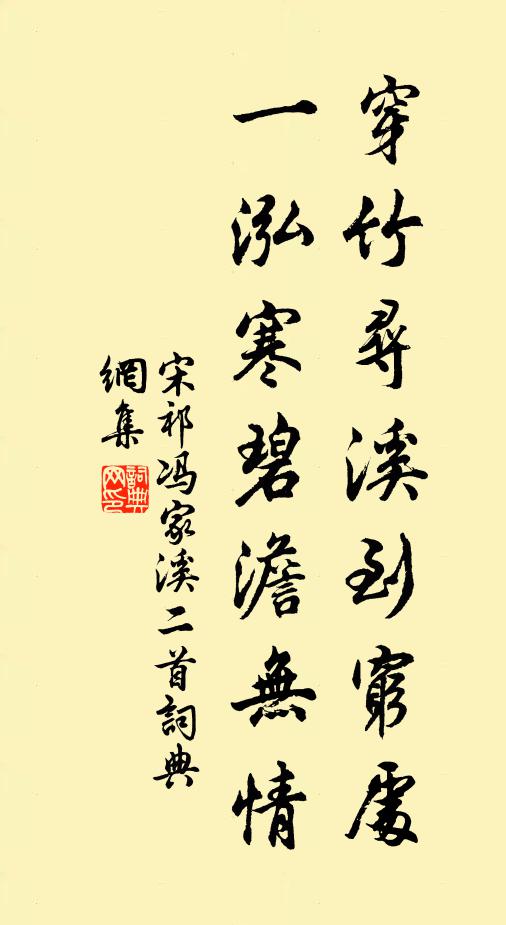 穿竹尋溪到窮處
一泓寒碧澹無情
宋祁馮家溪二首詞典
網集
詞典網印